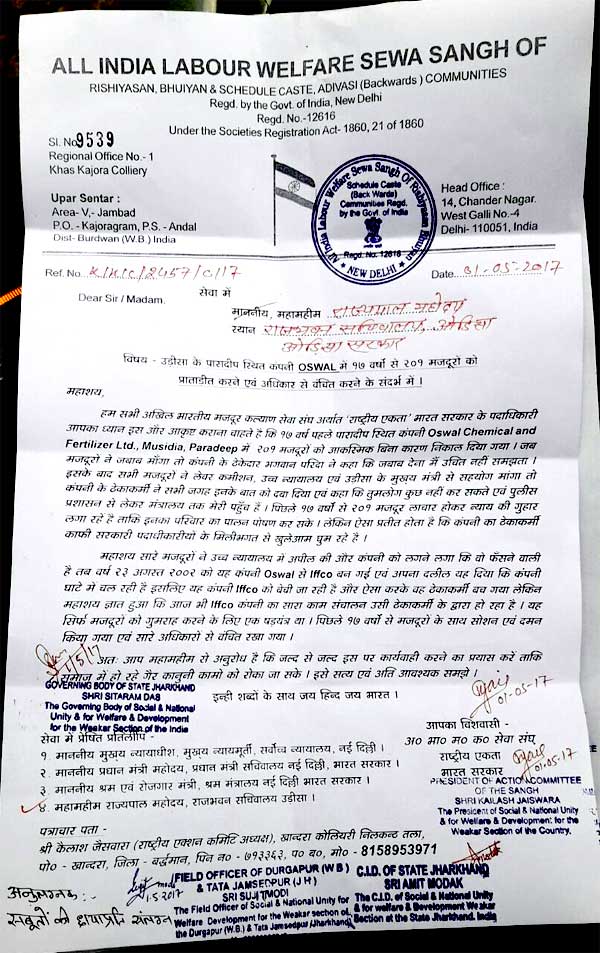 ALL INDIA LABOUR WELFARE SEWA SANGH OF
RISHIYASAN, BHUIYAN & SCHEDULE CASTE, ADIVASI (Backwards) COMMUNITIES
Regd. by the Govt. of India, New Delhi
Regd. No.-12616
Under the Societies Registration Act- 1860, 21 of 1860
Sl. No 9539
Regional Office No.- 1
Khas Kajora Colliery
Upar Sentar :
Area- V,- Jambad
P.O. - Kajoragram, P.S. - Andal
Dist- Burdwan (W.B.) India
All India Labour Welfare Sewa Sangh Of Rishiyasan Bhuiyan
Schedule Caste
(Back Wards)
Communities Regd.
by the Govt. of India
Regd. No. 12616
NEW DELHI
Head Office :
14, Chander Nagar.
West Galli No.-4
Delhi- 110051, India
Ref. No. K/K/C/2457/C/17
Date 31-05-2017
Dear Sir / Madam. सेवा में
माननीय, महामहीम राज्यपाल महोदय
स्थान राजभवन सचिवालय, ओडिसा
ओड़िसा सरकार
विषय - उडीसा के पारादीप स्थित कंपनी OSWAL में १७ वर्षो से २०१ मजदूरो को
प्रताडीत करने एवं अधिकार से वंचित करने के संदर्भ में ।
महाशय,
हम सभी अखिल भारतीय मजदूर कल्याण सेवा संघ अर्थात 'राष्ट्रीय एकता' भारत सरकार के पदाधिकारी
आपका ध्यान इस और आकृष्ट कराना चाहते है कि १७ वर्ष पहले पारादीप स्थित कंपनी Oswal Chemical and
Fertilizer Ltd., Musidia, Paradeep में २०१ मजदूरों को आकस्मिक बिना कारण निकाल दिया गया । जब
मजदूरो ने जवाब माँगा तो कंपनी के ठेकेदार भगवान परिदा ने कहा कि जवाब देना मैं उचित नहीं समझता ।
इसके बाद सभी मजदूरो ने लेवर कमीशन, उच्च न्यायालय एवं उडीसा के मुख्य मंत्री से सहयोग मांगा तो
कंपनी के ठेकाकर्मी ने सभी जगह इनके बात को दबा दिया एवं कहा कि तुमलोग कुछ नहीं कर सकते एवं पुलीस
प्रशासन से लेकर मंत्रालय तक मेरी पहुँच है । पिछले १७ वर्षो से २०१ मजदूर लाचार होकर न्याय की गुहार
लगा रहे है ताकि इनका परिवार का पालन पोषण कर सके । लेकिन ऐसा प्रतीत होता है कि कंपनी का ठेकाकर्मी
काफी सरकारी पदाधीकारीयो के मिलीभगत से खुलेआम घुम रहे है ।
महाशय सारे मजदूरो ने उच्च न्यायालय में अपील की और कंपनी को लगने लगा कि वो फँसने वाली
है तब वर्ष २३ अगस्त २००२ को यह कंपनी Oswal से Iffco बन गई एवं अपना दलील यह दिया कि कंपनी
घाटे में चल रही है इसलिए यह कंपनी Iffco को बेची जा रही है और ऐसा करके वह ठेकाकर्मी बच गया लेकिन
महाशय ज्ञात हुआ कि आज भी Iffco कंपनी का सारा काम संचालन उसी ठेकाकर्मी के द्वारा हो रहा है । यह
सिर्फ मजदूरो को गुमराह करने के लिए एक षड़यंत्र था । पिछले १७ वर्षो से मजदूरो के साथ सोशन एवं दमन
किया गया एवं सारे अधिकारो से वंचित रखा गया ।
अतः आप महामहीम से अनुरोध है कि जल्द से जल्द इस पर कार्यवाही करने का प्रयास करें ताकि
समाज में हो रहे गैर कानुनी कामो को रोका जा सकें । इसे सत्य एवं अति आवश्यक समझे ।
इन्ही शब्दों के साथ जय हिन्द जय भारत ।
GOVERNING BODY OF STATE JHARKHAND
SHRI SITARAM DAS
The Governing Body of Social & National
Unity & for Welfare & Development
for the Weakar Section of the India
01-05-17
आपका विशवासी -
अ० भा० म० क० सेवा संघ
राष्ट्रीय एकता
भारत सरकार
01-05-17
PRESIDENT OF ACTION COMMITTEE
OF THE SANGH
SHRI KAILASH JAISWARA
The President of Social & National Unity
& for Welfare & Development for the
Weakar Section of the Country.
सेवा में प्रेषित प्रतिलीपि -
१. माननीय मुख्य न्यायाधीश, मुख्य न्यायमूर्ती, सर्वोच्च न्यायालय, नई दिल्ली ।
२. माननीय प्रधान मंत्री महोदय, प्रधान मंत्री सचिवालय नई दिल्ली, भारत सरकार ।
३. माननीय श्रम एवं रोजगार मंत्री, श्रम मंत्रालय नई दिल्ली भारत सरकार ।
४. महामहीम राज्यपाल महोदय, राजभवन सचिवालय उडीसा ।
पत्राचार पता -
श्री कैलाश जैसवारा (राष्ट्रीय एक्शन कमिटि अध्यक्ष), खान्दरा कोलियरी निलकन्ट तला,
पो० - खान्दरा, जिला - बर्द्धमान, पिन न० - ७१३३६३, प० ब०, मो० - 8158953971
अनुलग्नक :-
सबूतों की छायाप्रति संलग्न
1.5.2017
FIELD OFFICER OF DURGAPUR (W B)
& TATA JAMSEDPUR (J H)
SRI SUJIT MODI
The Field Officer of Social & National Unity for
Welfare Development for the Weakar section of
the Durgapur (W.B) & Tata Jamsedpur (Jharkhand)
C.I.D. OF STATE JHARKHAND
SRI AMIT MODAK
The C.I.D. of Social & National Unity
& for welfare & Development Weakar
Section at the State Jharkhand. India